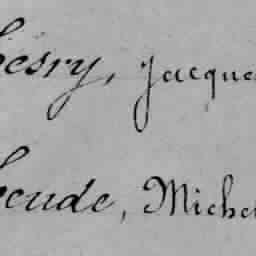 esry, Jacque
eude, Miche